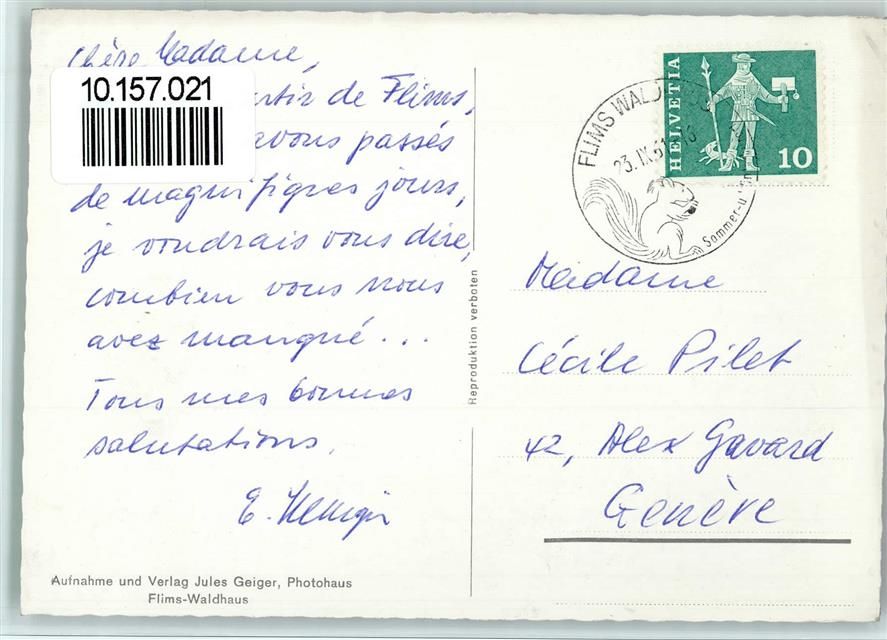 Chère Madame,
10.157.021
de Flims,
avons passés
de magnifiques jours,
je voudrais vous dire,
combien vous nous
avez manqué...
Tous mes bonnes
salutations.
E.
Aufnahme und Verlag Jules Geiger, Photohaus
Flims-Waldhaus
Reproduktion verboten
HELVETIA
10
FLIMS
23. IX. 61
Sommer-u
Madame
Cécile Pilet
42, Alex Gavard
Genève